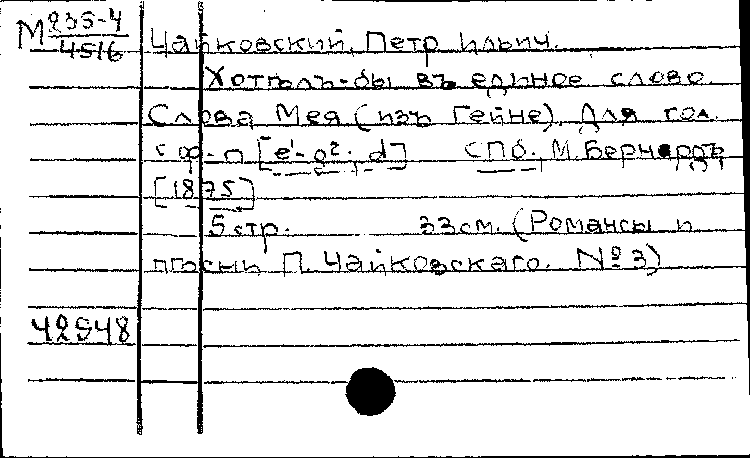 М 235-4
4516
Чайковский, Петр Ильич.
Хотѣлъ-бы въ единое слово.
Слова Мея (изъ Гейне). Для гол.
с ф-п [e¹-g²; d] СПб., М. Бернардъ
[1875]
5 стр. 33 см. (Романсы и
пѣсни П. Чайковскаго. № 3)
42948